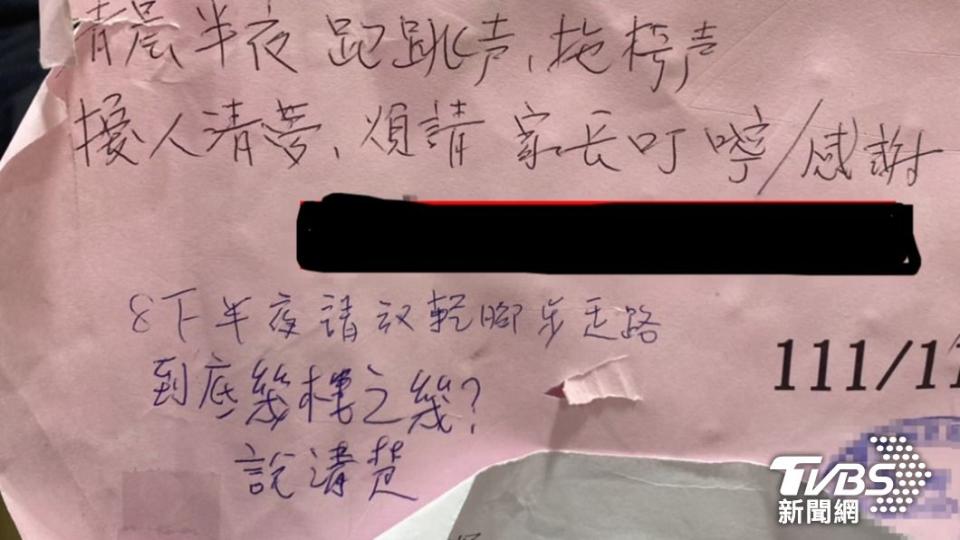 清晨半夜跑跳声、拖椅声
擾人清夢、煩請家長叮嚀/感謝
8下半夜請放輕腳步走路
到底幾樓之幾?
說清楚
111/11
TVBS
新聞網